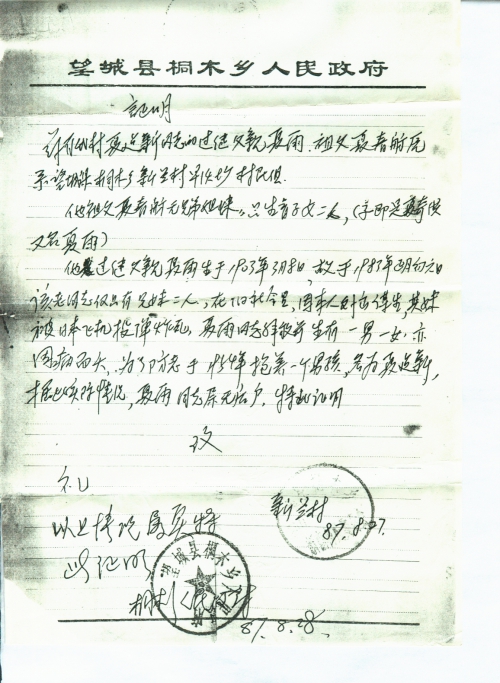 望城县桐木乡人民政府
证明
新兰村夏迪新同志的过继父亲夏雨、祖父夏春
系望城县桐木乡新兰村 村民组
他祖父夏春 无兄弟姐妹，只生育子女二人，（子即是夏
又名夏雨）
他过继父亲夏雨生于1905年3月8日，故于1987年
该老同志仅只有兄妹二人，在旧社会里，因本人 其妹
被日本飞机投弹炸死，夏雨同志解放前生有一男一女，亦
因病而夭，为了 于1954年抱养一个男孩，名为夏迪新，
根据实际情况，夏雨同志 ，特此证明
致
礼
新兰村
87.8.27.
以上情况属实特
此证明
望城县桐木乡人民政府
87.8.28.